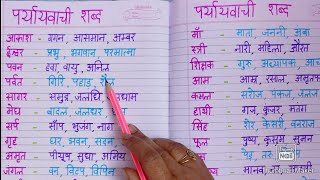 पर्यायवाची शब्द
आकाश - गगन, आसमान, अम्बर
ईश्वर - प्रभु, भगवान, परमात्मा
पवन - हवा, वायु, अनिल
पर्वत - गिरि, पहाड़,
सागर - समुद्र, जलधि,
मेघ - बादल, जलधर,
सर्प - साँप, भुजंग, नाग
गृह - घर, भवन, सदन
अमृत - पीयूष, सुधा, अमिय
जंगल - वन, विपिन
पर्यायवाची शब्द
माँ - माता, जननी, अंबा
स्त्री - नारी, महिला, औरत
शिक्षक - गुरु, अध्यापक,
आम - आम्र, रसाल,
कमल - सरोज, पंकज,
हाथी - गज, कुंजर,
सिंह - शेर, केसरी,
फूल - पुष्प, कुसुम, सुमन